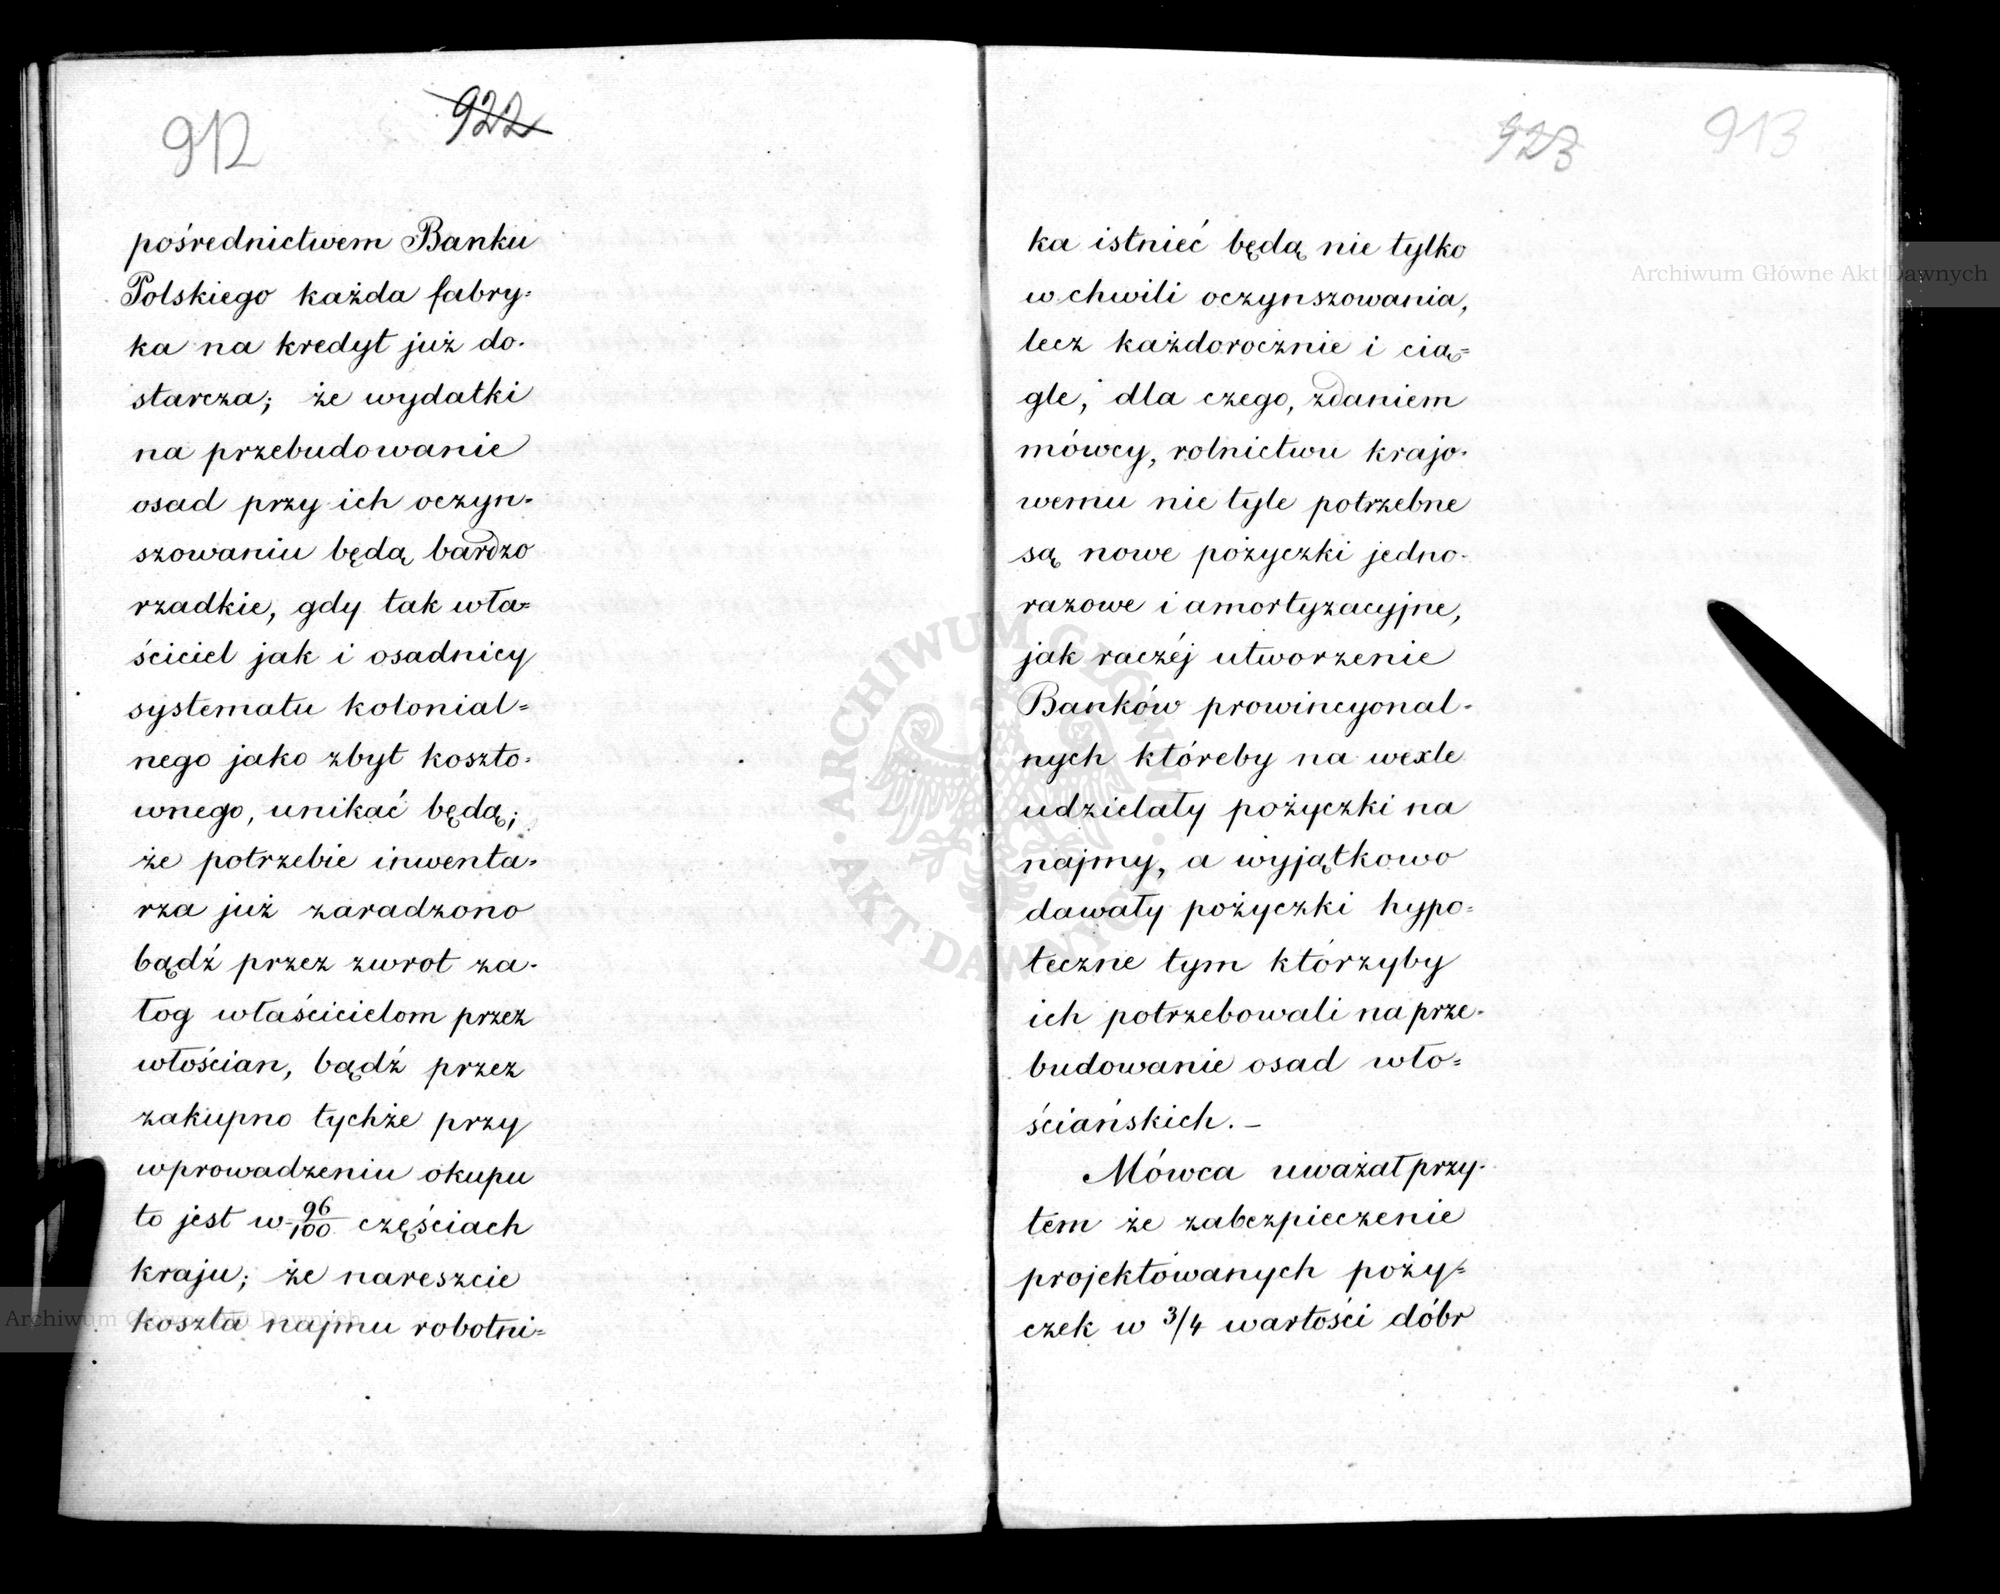 912 922
pośrednictwem Banku
Polskiego każda fabry-
ka na kredyt już do-
starcza; że wydatki
na przebudowanie
osad przy ich oczyn-
szowaniu będą bardzo
rzadkie, gdy tak wła=
ściciel jak i osadnicy
systematu kolonial=
nego jako zbyt koszto-
wnego, unikać będą;
że potrzebie inwenta-
rza już zaradzono
bądź przez zwrot za-
łog właścicielom przez
włościan, bądź przez
zakupno tychże przy
wprowadzeniu okupu
to jest w 96/100 częściach
kraju; że nareszcie
koszta najmu robotni=
923 913
ka istnieć będą nie tylko
w chwili oczynszowania,
lecz każdorocznie i cią=
gle, dla czego, zdaniem
mówcy, rolnictwu krajo-
wemu nie tyle potrzebne
są nowe pożyczki jedno-
razowe i amortyzacyjne,
jak raczéj utworzenie
Banków prowincyonal-
nych któreby na wexle
udzielały pożyczki na
najmy, a wyjątkowo
dawały pożyczki hypo=
teczne tym którzyby
ich potrzebowali na prze-
budowanie osad wło=
ściańskich. –
Mówca uważał przy-
tem że zabezpieczenie
projektowanych poży=
czek w 3/4 wartości dóbr
Archiwum Główne Akt Dawnych
ARCHIWUM GŁÓWNE · AKT DAWNYCH ·
Archiwum Główne Akt Dawnych